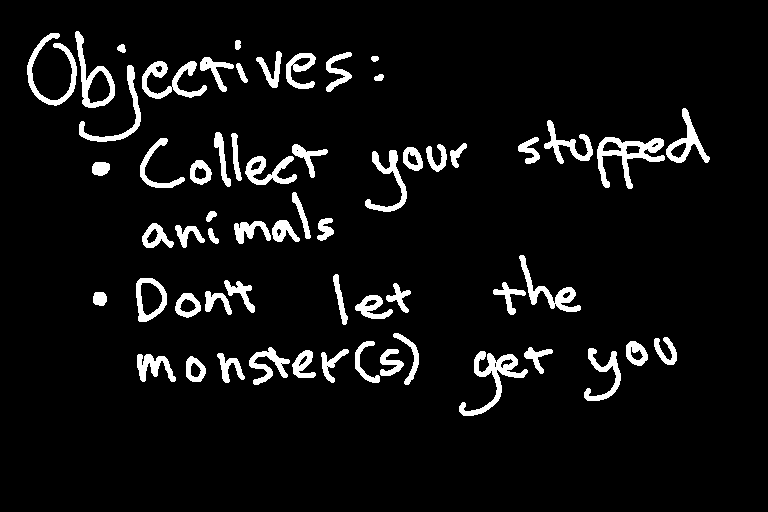 Objectives:
• Collect your stuffed
animals
• Don't let the
monster(s) get you